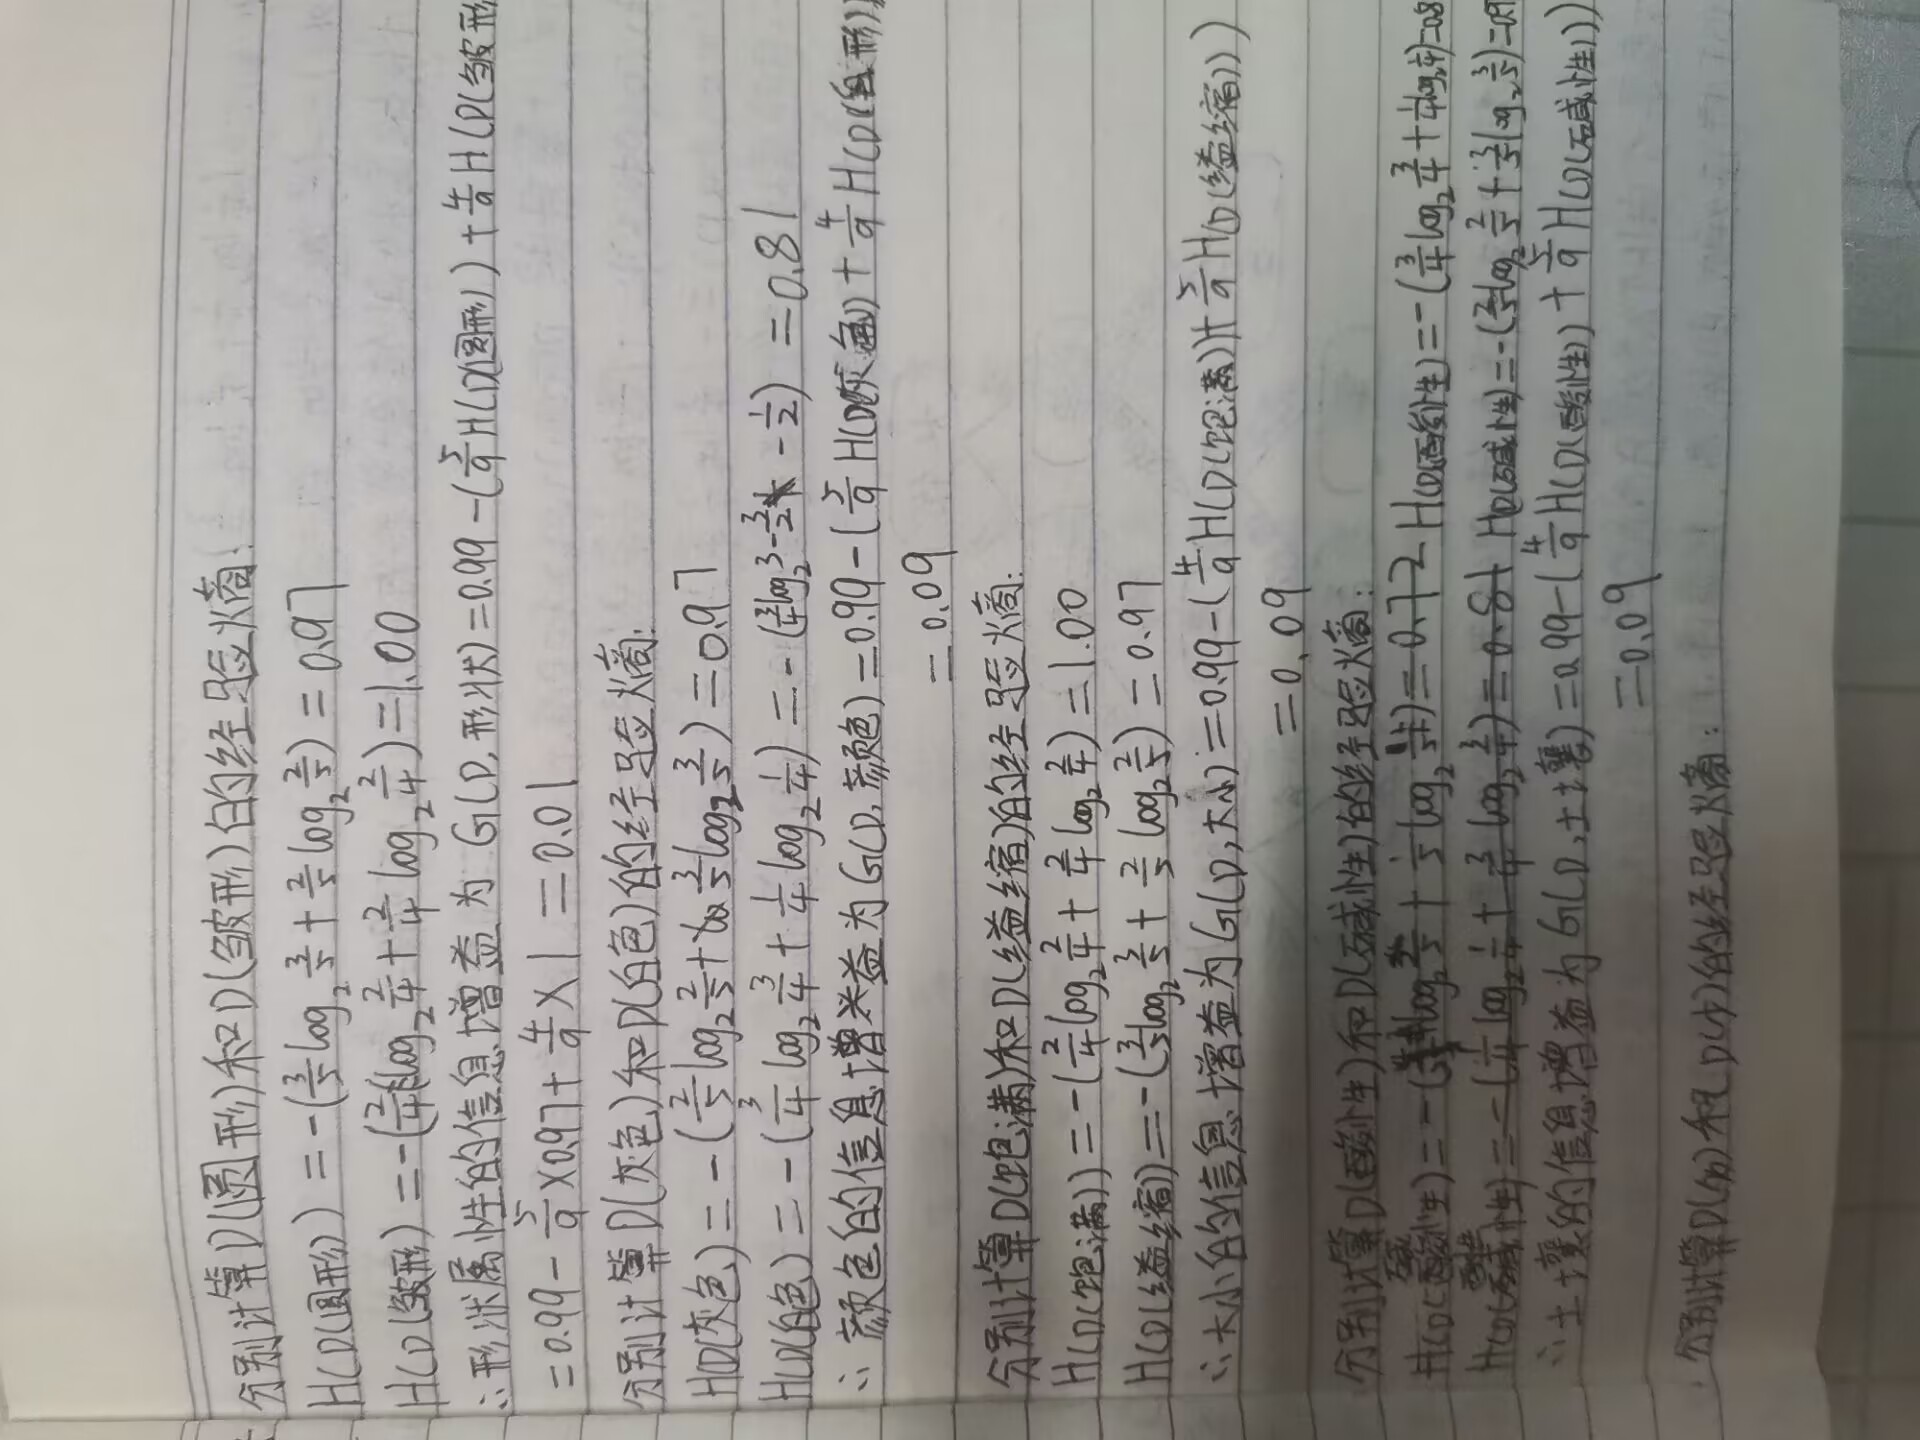 分别计算D(圆形)和D(皱形)的经验熵:
H(D(圆形)) = -(3/5 log₂ 3/5 + 2/5 log₂ 2/5) = 0.97
H(D(皱形)) = -(2/4 log₂ 2/4 + 2/4 log₂ 2/4) = 1.00
∴形状属性的信息增益为 G(D,形状) = 0.99 - (5/9 H(D(圆形)) + 4/9 H(D(皱形
= 0.99 - 5/9 × 0.97 + 4/9 × 1 = 0.01
分别计算D(灰色)和D(白色)的经验熵:
H(D(灰色) = -(2/5 log₂ 2/5 + 3/5 log₂ 3/5) = 0.97
H(D(白色) = -(3/4 log₂ 3/4 + 1/4 log₂ 1/4) = -(3/4 log₂ 3 - 3/2 - 1/2) = 0.81
∴颜色的信息增益为G(D,颜色) = 0.99 - (5/9 H(D(灰色)) + 4/9 H(D(白形))
= 0.09
分别计算D(饱满)和D(缢缩)的经验熵:
H(D(饱满)) = -(2/4 log₂ 2/4 + 2/4 log₂ 2/4) = 1.00
H(D(缢缩)) = -(3/5 log₂ 3/5 + 2/5 log₂ 2/5) = 0.97
∴大小的信息增益为G(D,大小) = 0.99 - (4/9 H(D(饱满)) + 5/9 H(D(缢缩)))
= 0.09
分别计算D(酸性)和D(碱性)的经验熵:
log₂ 1/5) = 0.72 H(D(酸性) = -(3/4 log₂ 3/4 + 1/4 log₂ 1/4) = 0.8
= -(1/4 log₂ 1/4 + 3/4 log₂ 3/4) = 0.81 H(D(碱性) = -(2/5 log₂ 2/5 + 3/5 log₂ 3/5) = 0.97
∴土壤的信息增益为G(D,土壤) = 0.99 - (4/9 H(D(酸性)) + 5/9 H(D(碱性)))
= 0.09
分别计算D(

的经验熵: